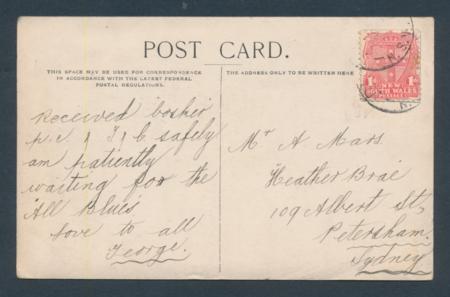 POST CARD.
THIS SPACE MAY BE USED FOR CORRESPONDENCE
IN ACCORDANCE WITH THE LATEST FEDERAL
POSTAL REGULATIONS.
THE ADDRESS ONLY TO BE WRITTEN HERE
1D 1D
NEW
SOUTH WALES
POSTAGE
N.S.W
Received
p.c. safely
am patiently
waiting for the
All Blues
Love to all
George.
Mr A Mars
Heather Brae
109 Albert St,
Petersham.
Sydney